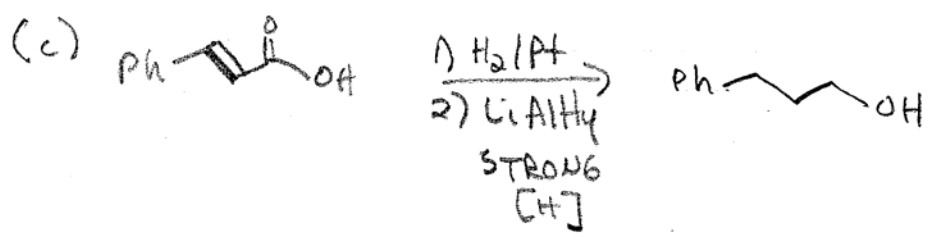 (c)
O
Ph
OH
1) H2/Pt
2) LiAlH4
STRONG
[H]
Ph
OH